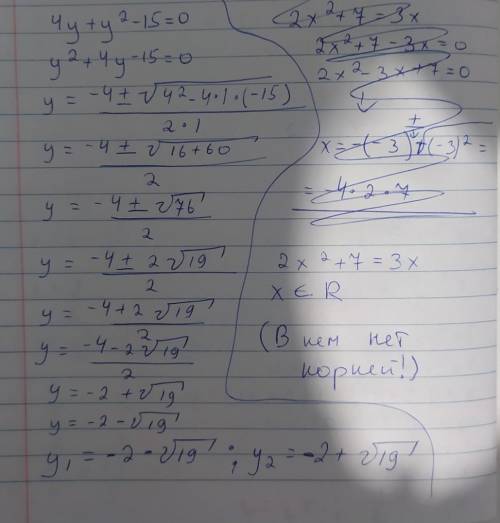 4y + y² - 15 = 0
y² + 4y - 15 = 0
y = (-4 ± √(4² - 4·1·(-15))) / (2·1)
y = (-4 ± √(16 + 60)) / 2
y = (-4 ± √76) / 2
y = (-4 ± 2√19) / 2
y = (-4 + 2√19) / 2
y = (-4 - 2√19) / 2
y = -2 + √19
y = -2 - √19
y₁ = -2 - √19 ; y₂ = -2 + √19
2x² + 7 = 3x
2x² + 7 - 3x = 0
2x² - 3x + 7 = 0
x = -(-3) ± √(-3)² =
= -4·2·7
2x² + 7 = 3x
x ∈ R
(В нем нет
корней!)